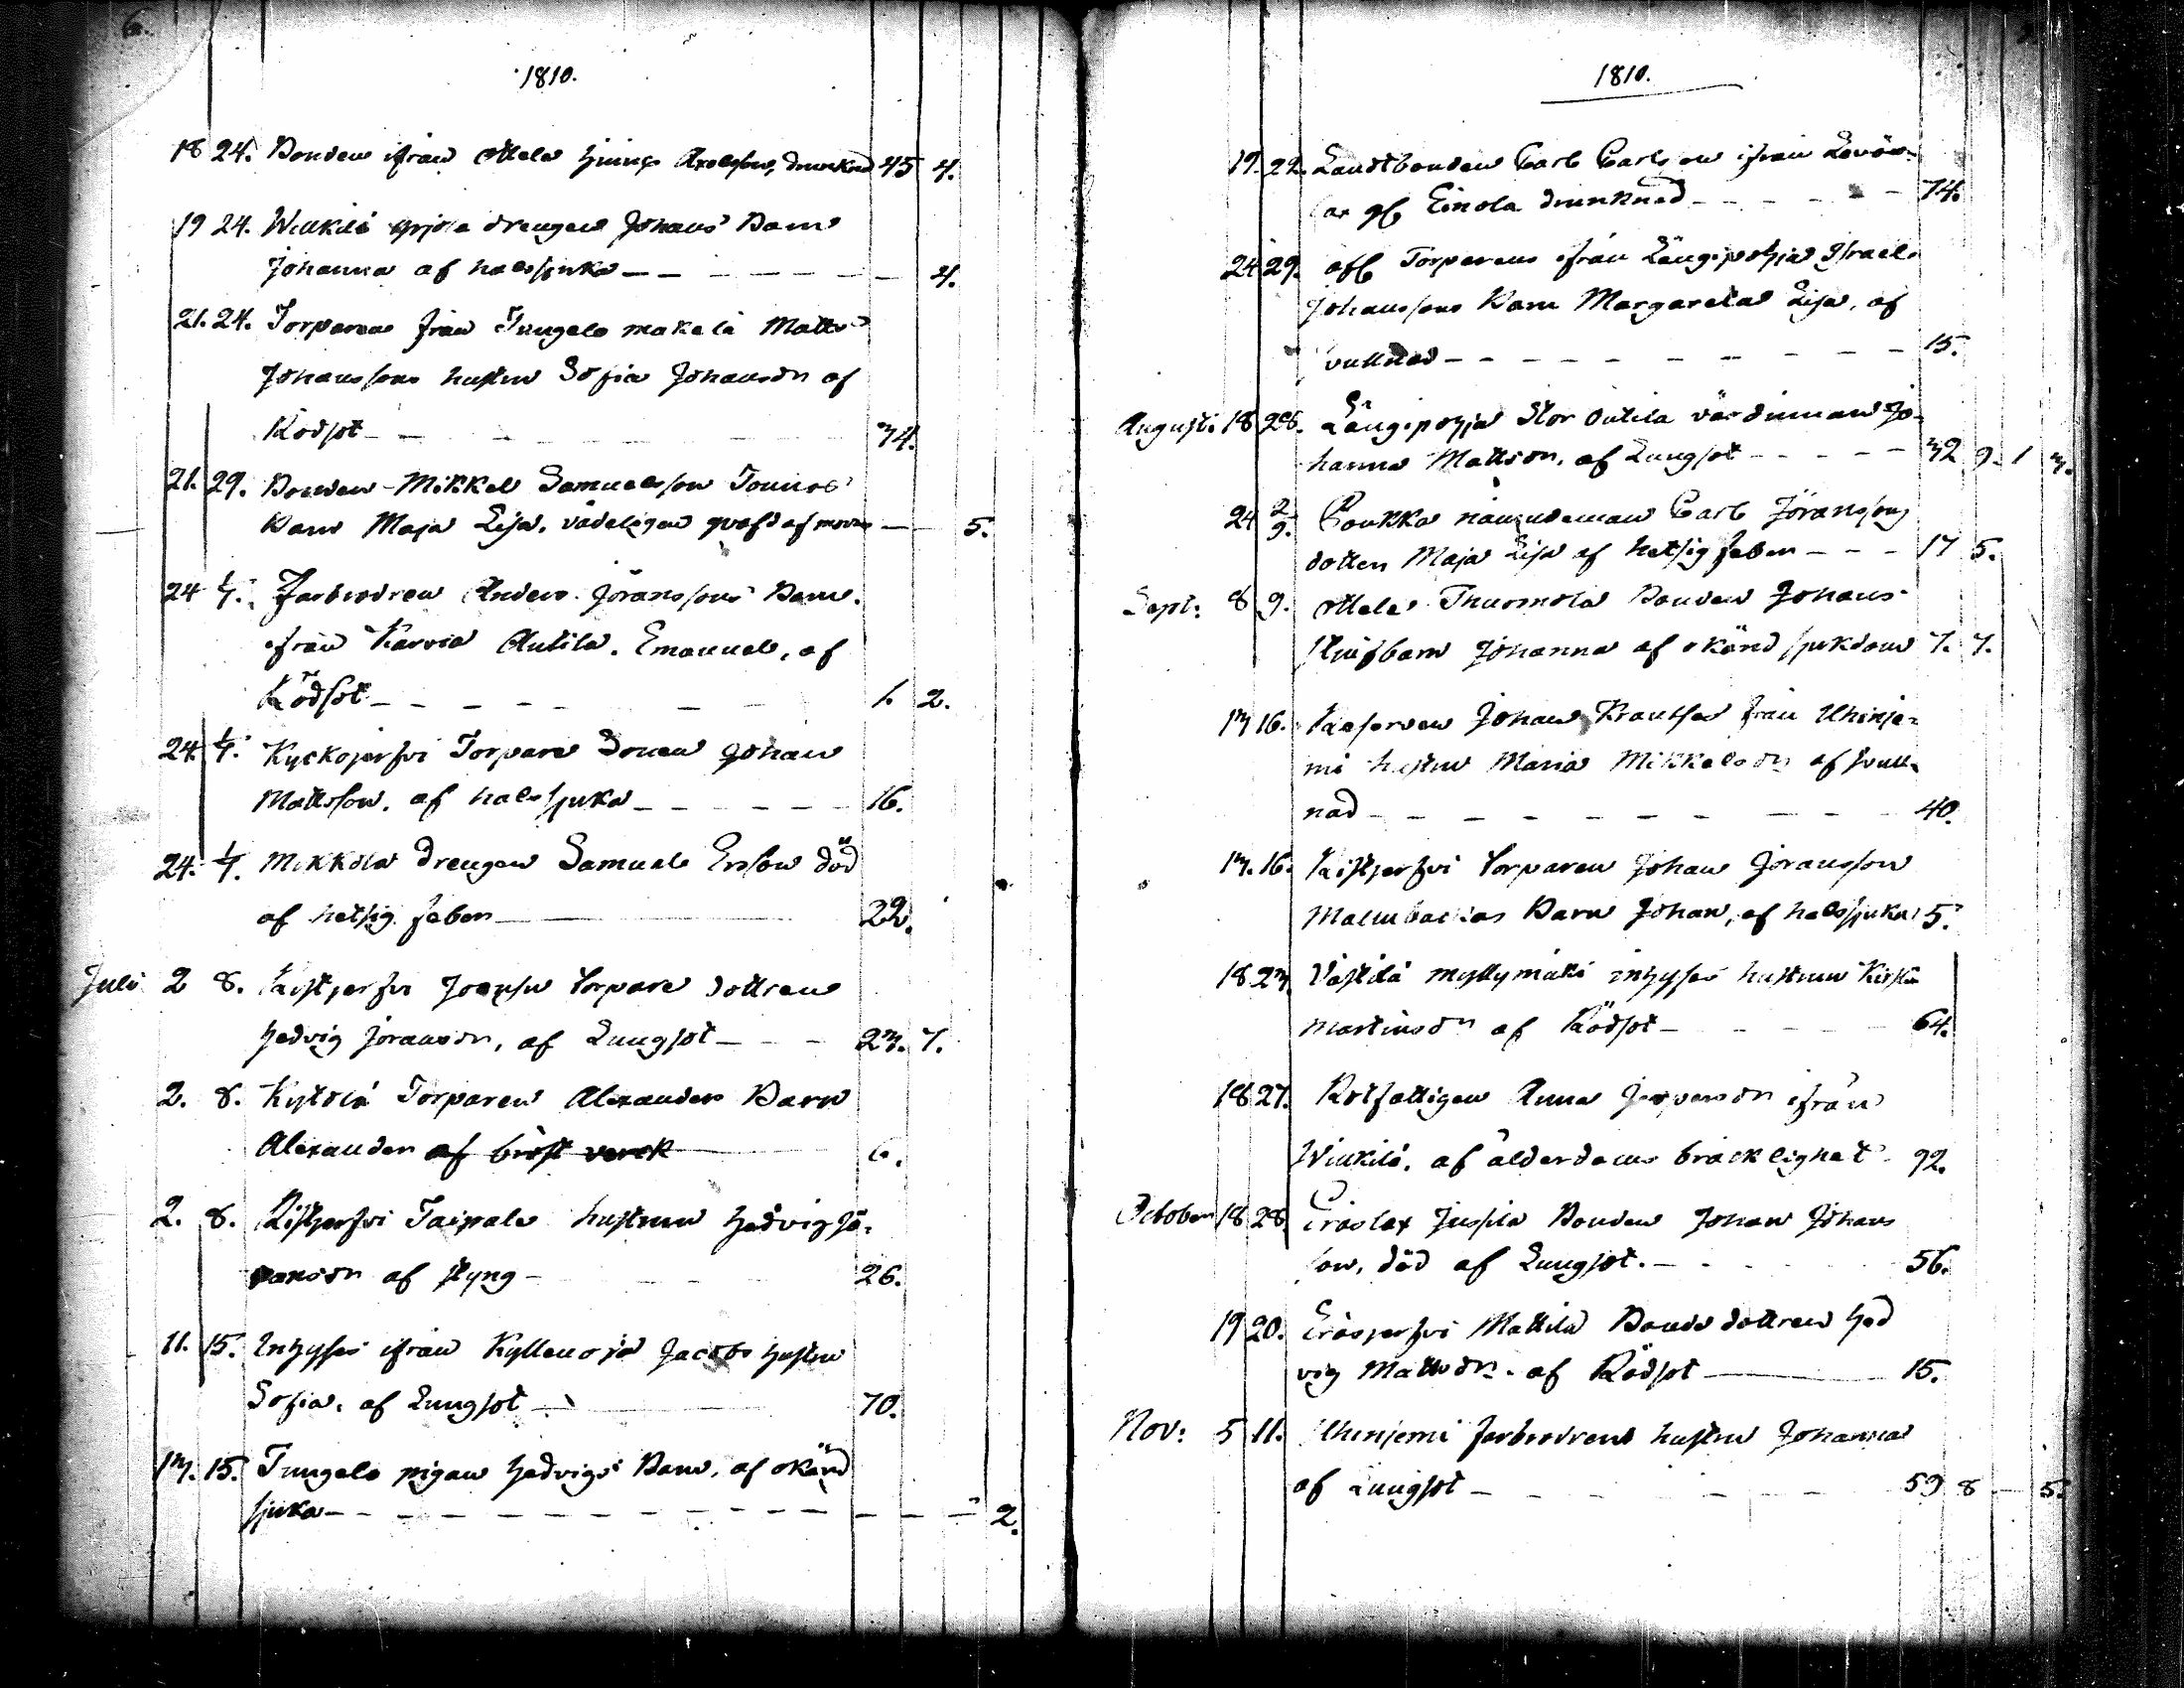 6.
1810.
18 24. Bonden ifrån Ottela Hinric Axelsson, drunknad 45 4.
19 24. Winkilä drengen Johans Barn
Johanna af halssjuka — — — — — — 4.
21. 24. Torparens från Jungels makelä Matts
Johanssons hustru Sofia Johansdr af
Rödsot — — — — — 34.
21. 29. Bonden Mikkel Samuelsson
Barn Maja Lisa, vådeligen qvafd af modren — — 5.
24 1/7. Farbrodren Anders Jöranssons Barn
ifrån Karvia Antila. Emanuel, af
Rödsot — — — — — 1. 2.
24. 1/7. Kyckojerfvi Torpare Sonen Johan
Mattsson. af halssjuka — — — — — 16.
24. 1/7. Mikkola Drengen Samuel Ersson död
af hetsig feber — 22.
Juli 2 8. Kistjerfvi Torpare dottren
Hedvig Jöransdr, af Lungsot — — — 23. 7.
2. 8. Kytölä Torparen Alexanders Barn
Alexander af bröst verck — 6.
2. 8. Kistjerfvi Taipale hustrun Hedvig Jö-
ransdr af styng — — — 26.
11. 15. Inhyses ifrån Kyllenoja Jacobs Hustru
Sofia. af Lungsot — 70.
13. 15. Jungels pigan Hedvigs Barn. af okänd
sjuka — — — — — — — — — — 2.
1810.
19. 22. Landtbonden Carl Carlsson ifrån Levön-
Einola drunknad — — — — — 74.
24 29. afl Torparens ifrån Långipohja Israel
Johanssons Barn Margareta Lisa, af
svullnad — — — — — — — — — 15.
Augusti 18 26. Långipohja Stor Outila värdinnan Jo-
hanna Mattsdr. af Lungsot — — — — — 32 9. 1 3.
24 2/9. Poukka nämndeman Carl Jöranssons
dotter Maja Lisa af hetsig feber — — — 17 5.
Sept: 8 9. Ottele Thuomola Bonden Johans
Stiufbarn Johanna af okänd sjukdom 7. 7.
13 16. Johan Krantsen från Uhinje-
mi hustru Maria Mikkelsdr af svull-
nad — — — — — — — — 40.
13. 16. Kistjerfvi Torparen Johan Jöransson
Malmbackas Barn Johan, af halssjuka 5.
18 23 Västilä myllymäki inhyses hustrun
Martinsdr af Rödsot — — — — 64.
18 27. Rotfattigen Anna ifrån
Winkilä. af ålderdoms bräcklighet 92.
October 18 28 Bonden Johan Johans
son, död af Lungsot. — — — — 56.
19 20. Eräsjerfvi Mattila Bonde dottren Hed
vig Mattsdr. af Rödsot — 15.
Nov: 5 11. Uhinjemi farbrodrens hustru Johanna
af Lungsot — — — — — 59 8 — 5.